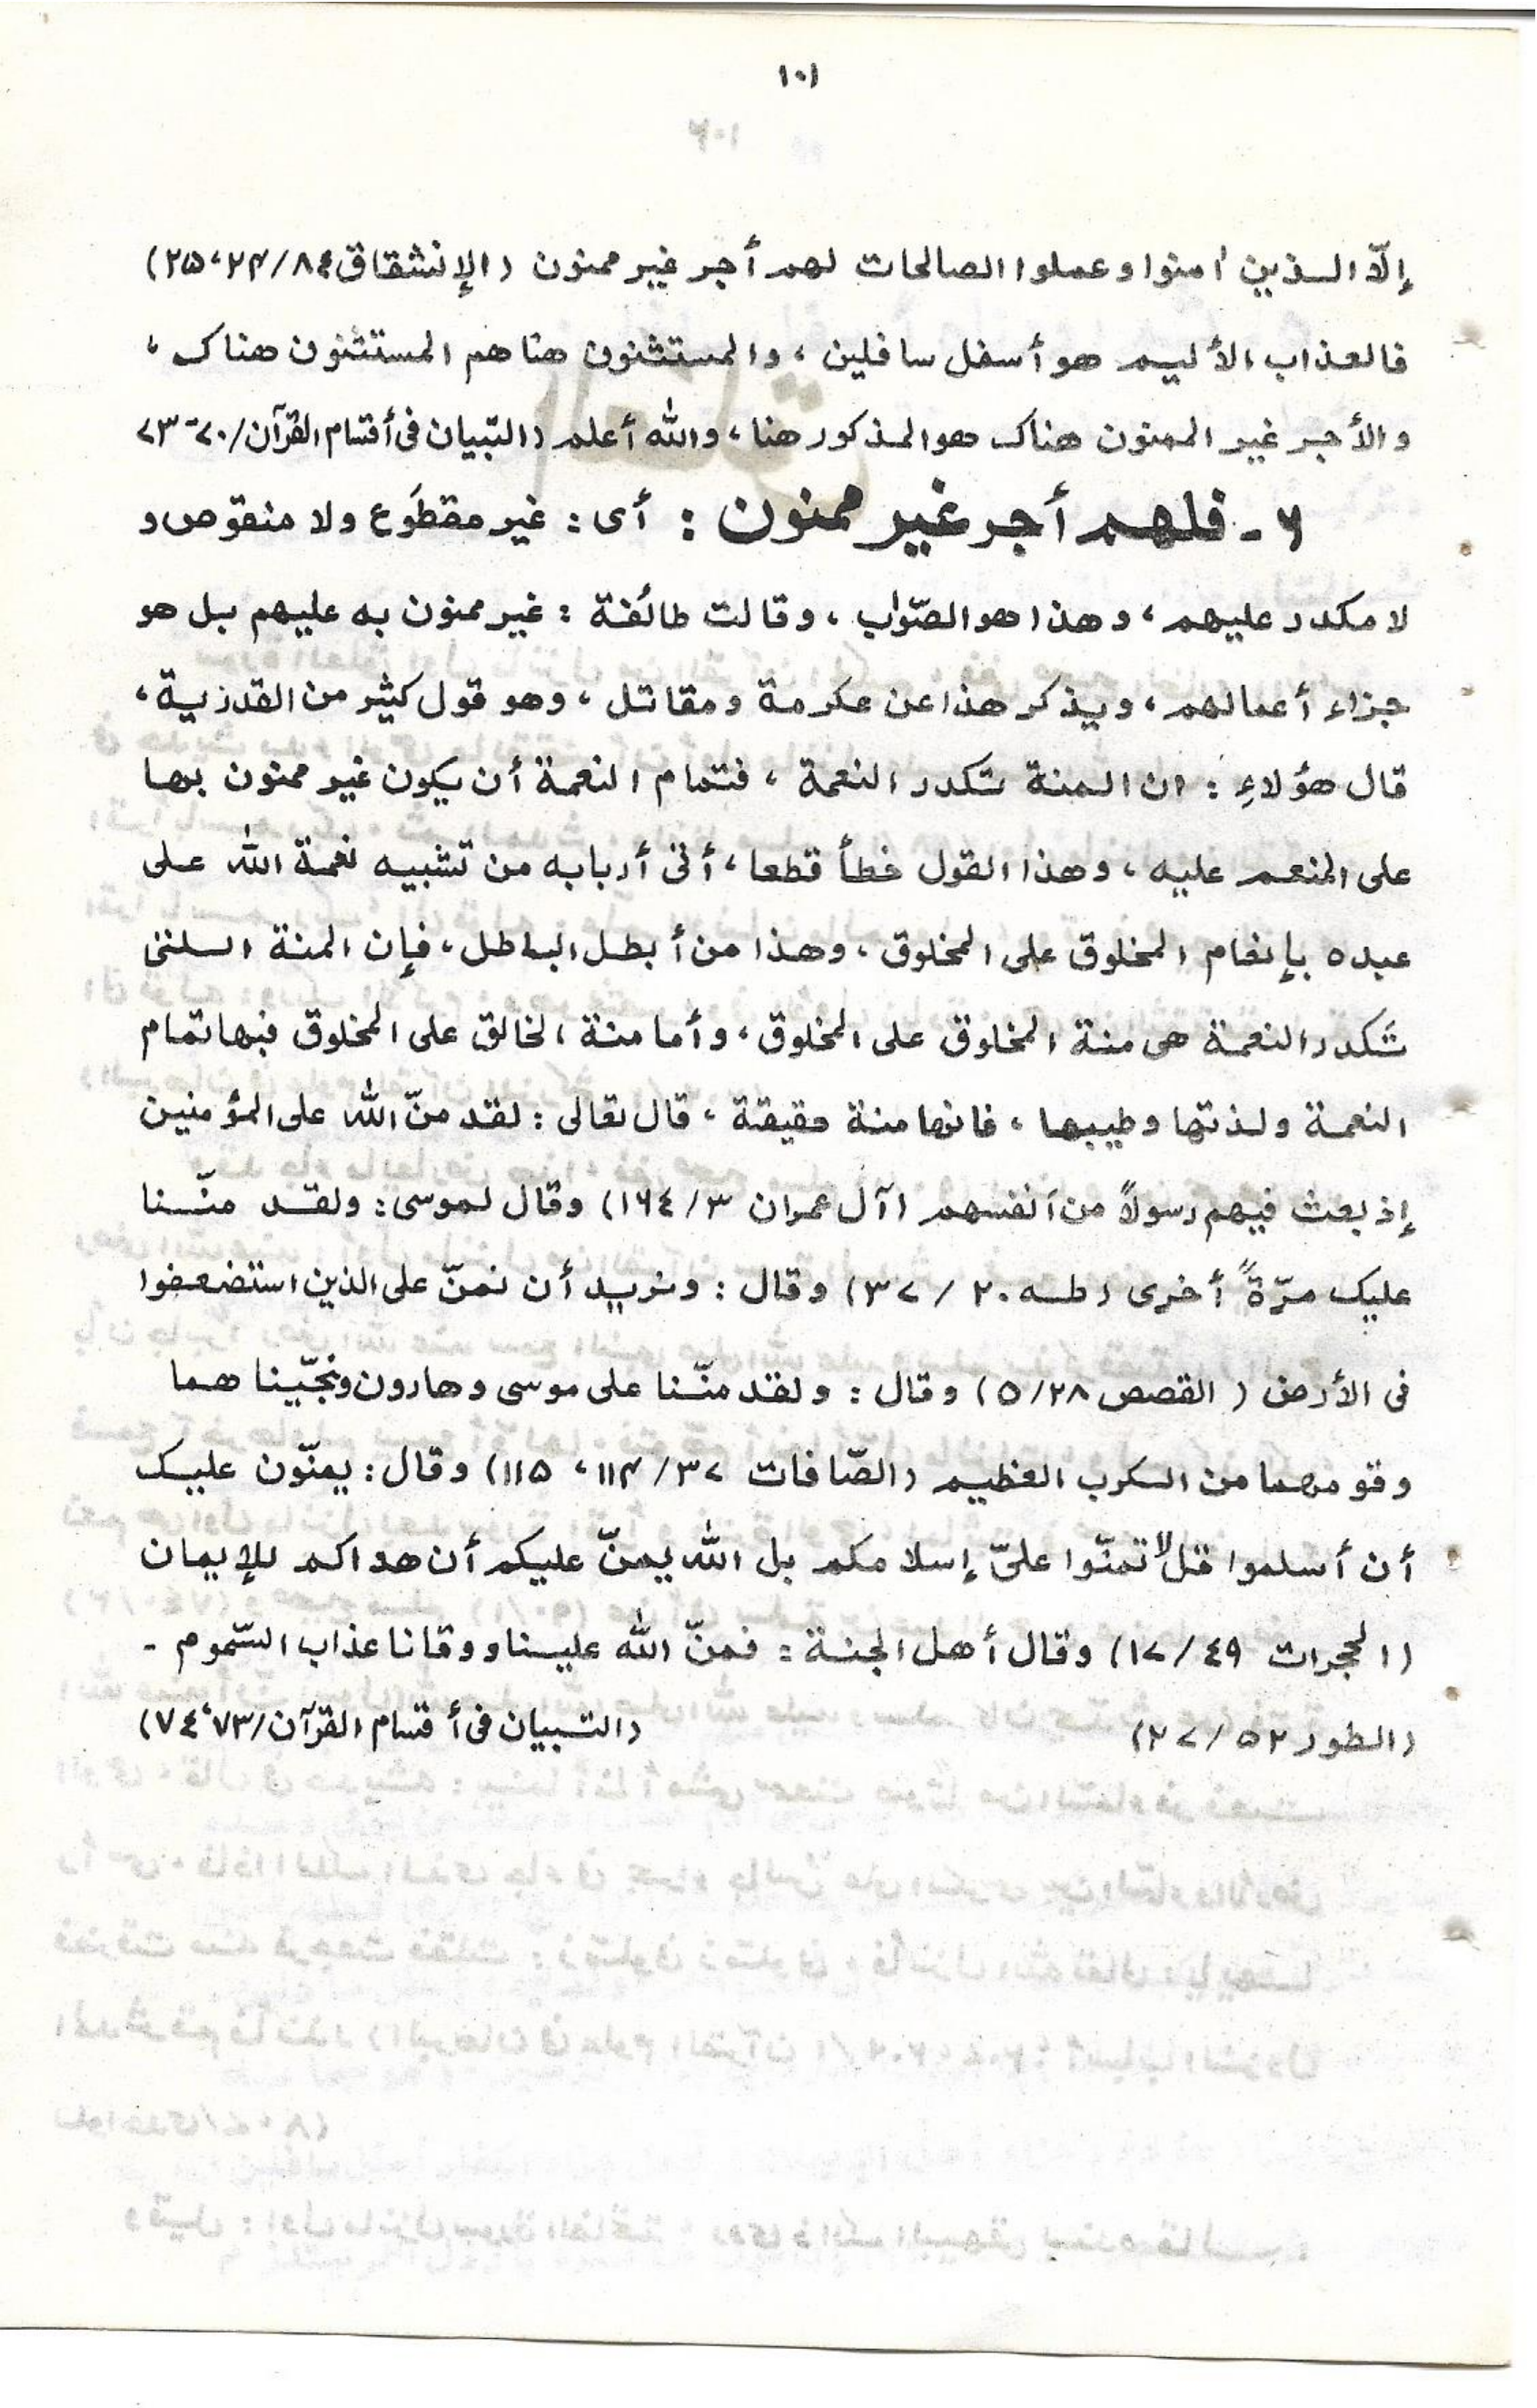 ١٠١
إلّا الذين اٰمنوا وعملوا الصالحات لهم أجر غير ممنون (الإنشقاق ٨٤/٢٤،٢٥)
فالعذاب الأليم هو أسفل سافلين، والمستثنون هنا هم المستثنون هناك،
والأجر غير الممنون هناك هو المذكور هنا، والله أعلم (التبيان فى أقسام القرآن/٧٠-٧٣
٦- فلهم أجر غير ممنون : أى: غير مقطوع ولا منقوص و
لا مكدر عليهم، وهذا هو الصّواب، وقالت طائفة : غير ممنون به عليهم بل هو
جزاء أعمالهم، ويذكر هذا عن عكرمة ومقاتل، وهو قول كثير من القدرية،
قال هؤلاءِ : ان المنة تكدر النعمة، فتمام النعمة أن يكون غير ممنون بها
على المنعم عليه، وهذا القول خطأ قطعا، أتى أربابه من تشبيه نعمة الله على
عبده بإنعام المخلوق على المخلوق، وهذا من أبطل الباطل، فإن المنة التى
تكدر النعمة هى منة المخلوق على المخلوق، وأما منة الخالق على المخلوق فبها تمام
النعمة ولذتها وطيبها، فانها منة حقيقة، قال تعالى : لقد منّ الله على المؤمنين
إذ بعث فيهم رسولاً من أنفسهم (آل عمران ٣/١٦٤) وقال لموسى: ولقد منّنا
عليك مرّةً أخرى (طه ٢٠ / ٣٧) وقال : ونريد أن نمنّ على الذين استضعفوا
فى الأرض ( القصص ٢٨/٥) وقال : ولقد منّنا على موسى وهارون ونجّينا هما
وقومهما من الكرب العظيم (الصّافات ٣٧/١١٤، ١١٥) وقال: يمنّون عليك
أن أسلموا قل لا تمنّوا علىّ إسلامكم بل الله يمنّ عليكم أن هداكم للإيمان
(الحجرات ٤٩/١٧) وقال أهل الجنة : فمنّ الله علينا ووقانا عذاب السّموم -
(الطور ٥٢/٢٧) (التبيان فى أقسام القرآن/٧٣،٧٤)